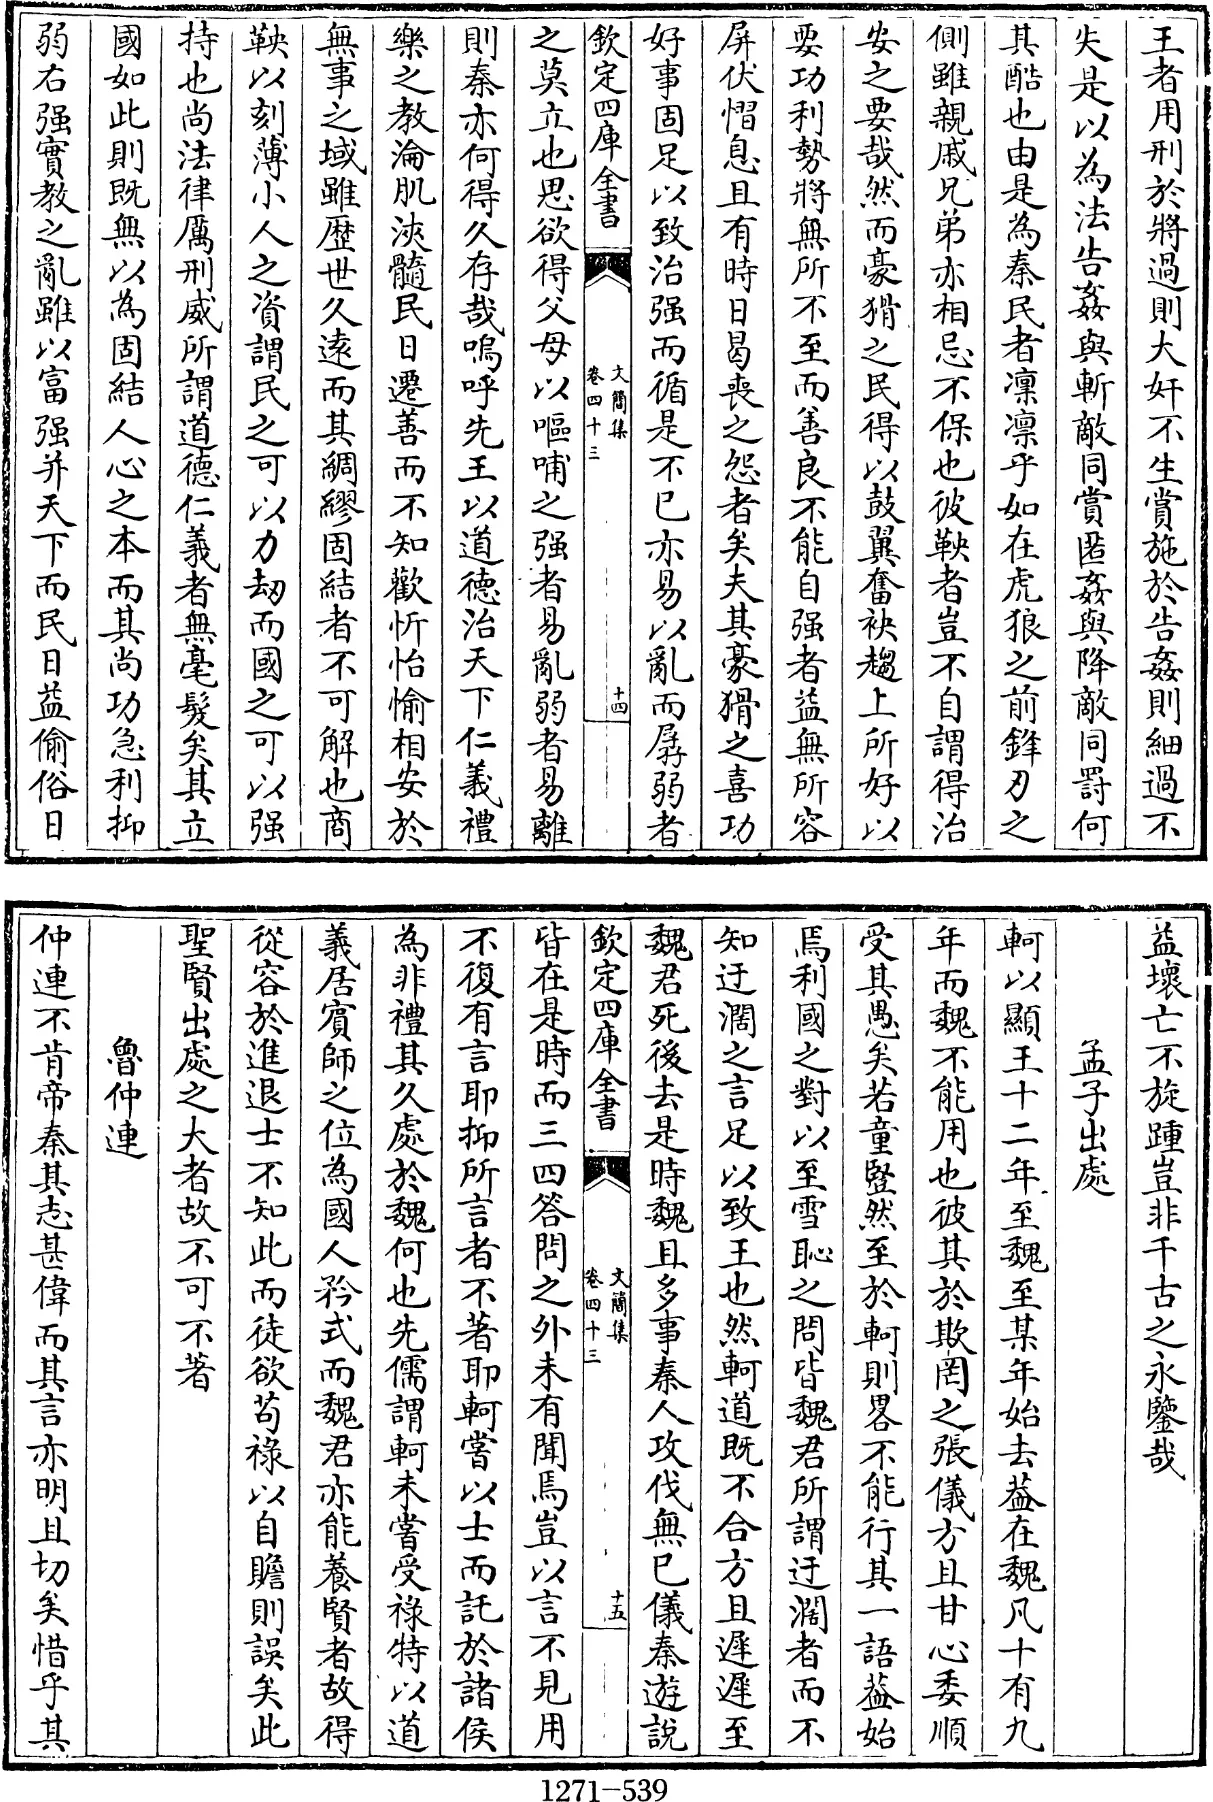 王者用刑於將過則大奸不生賞施於告姦則細過不
失是以為法告姦與斬敵同賞匿姦與降敵同罰何
其酷也由是為秦民者凜凜乎如在虎狼之前鋒刃之
側雖親戚兄弟亦相忌不保也彼鞅者豈不自謂得治
安之要哉然而豪猾之民得以鼓翼奮袂趨上所好以
要功利勢將無所不至而善良不能自强者益無所容
屏伏慴息且有時日曷喪之怨者矣夫其豪猾之喜功
好事固足以致治强而循是不已亦易以亂而孱弱者
欽定四庫全書
文簡集
卷四十三
十四
之莫立也思欲得父母以嘔哺之强者易亂弱者易離
則秦亦何得久存哉嗚呼先王以道德治天下仁義禮
樂之教淪肌浹髓民日遷善而不知歡忻怡愉相安於
無事之域雖歷世久遠而其綢繆固結者不可解也商
鞅以刻薄小人之資謂民之可以力刼而國之可以强
持也尚法律厲刑威所謂道德仁義者無毫髮矣其立
國如此則既無以為固結人心之本而其尚功急利抑
弱右强實教之亂雖以富强并天下而民日益偷俗日
益壞亡不旋踵豈非千古之永鑒哉
孟子出處
軻以顯王十二年至魏至某年始去葢在魏凡十有九
年而魏不能用也彼其於欺罔之張儀方且甘心委順
受其愚矣若童豎然至於軻則畧不能行其一語葢始
焉利國之對以至雪恥之問皆魏君所謂迂濶者而不
知迂濶之言足以致王也然軻道既不合方且遲遲至
魏君死後去是時魏且多事秦人攻伐無已儀秦遊說
欽定四庫全書
文簡集
卷四十三
十五
皆在是時而三四答問之外未有聞焉豈以言不見用
不復有言耶抑所言者不著耶軻嘗以士而託於諸侯
為非禮其久處於魏何也先儒謂軻未嘗受祿特以道
義居賓師之位為國人矜式而魏君亦能養賢者故得
從容於進退士不知此而徒欲苟祿以自贍則誤矣此
聖賢出處之大者故不可不著
魯仲連
仲連不肯帝秦其志甚偉而其言亦明且切矣惜乎其
1271-539